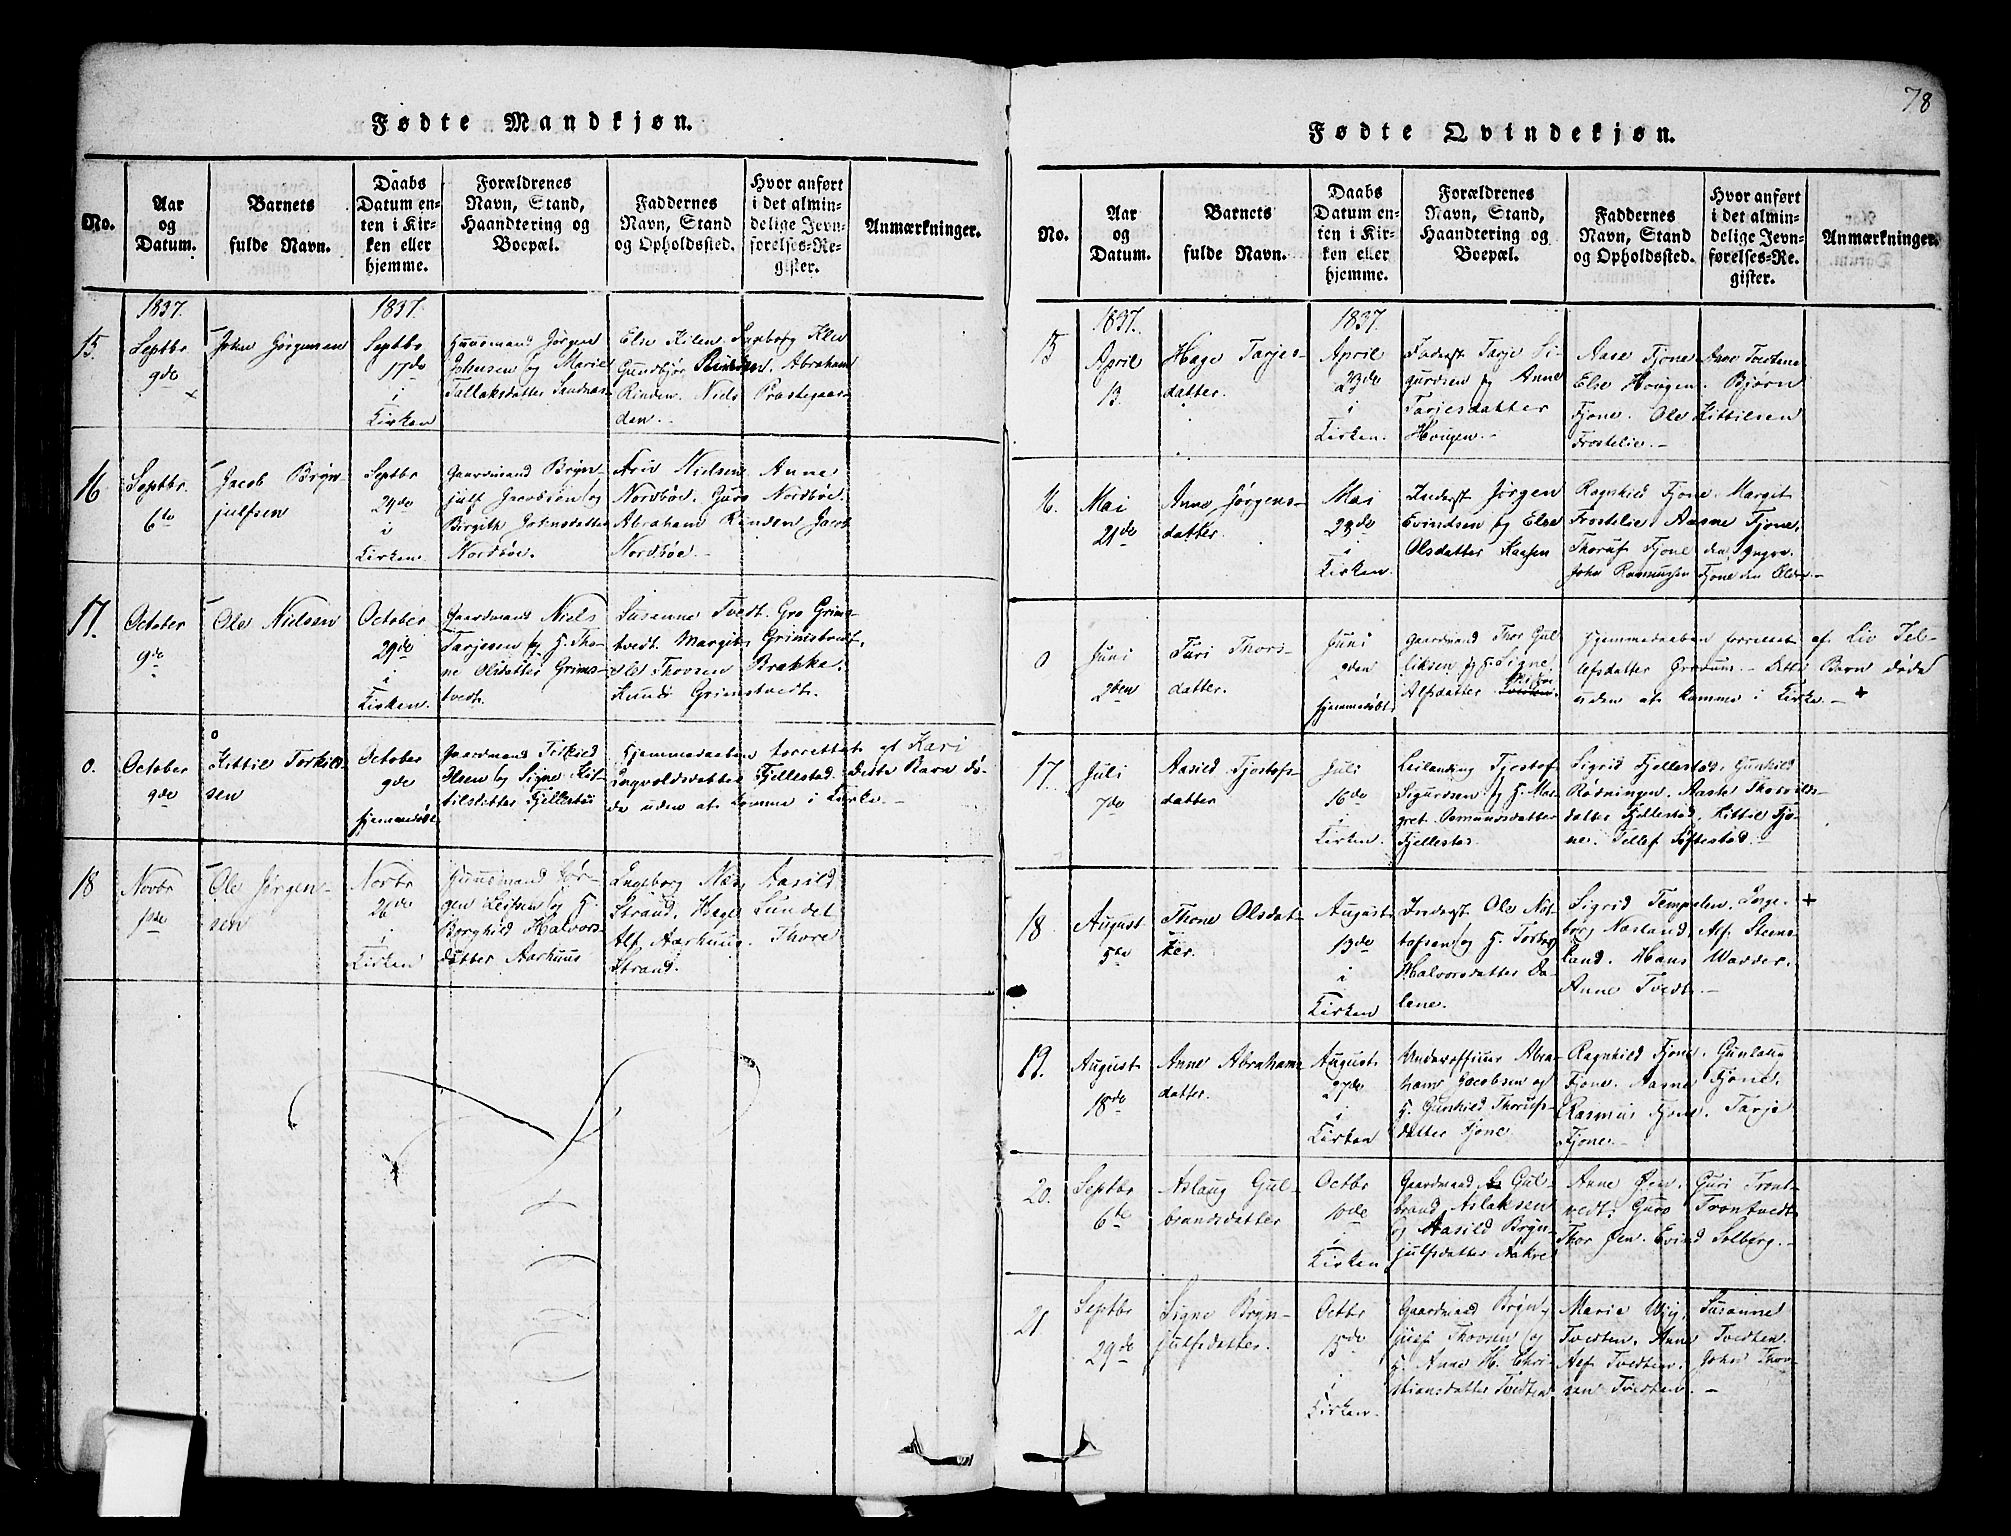 78
Fødte Mandkjøn.
No.
Aar
og
Datum.
Barnets
fulde Navn.
Daabs
Datum en-
ten i Kir-
ken eller
hjemme.
Forældrenes
Navn, Stand,
Haandtering og
Boepæl.
Faddernes
Navn, Stand
og Opholdssted.
Hvor anført
i det almin-
delige Jevn-
førelses-Re-
gister.
Anmærkninger.
15.
1837.
Septbr
9de
John Jørgensen
1837.
Septbr
17de
i
Kirken
Huusmand Jørgen
Johnsen og Marie
Tallaksdatter Sandnæs
Else Kilen Ingeborg Kilen
Gundbjør Rinden. Abraham
Rinden. Niels Præstegaar-
den.
16
Septbr.
6te
Jacob Bryn-
julfsen
Septbr
24de
i
Kirken.
Gaardmand Bryn-
julf Jacobsen og
Birgith Johnsdatter
Nordbøe.
Nielsen Anne
Nordbøe. Guro Nordbøe.
Abraham Rinden Jacob
Nordbøe.
17.
October
9de
Ole Nielsen
October
29de
i
Kirken.
Gaardmand Niels
Tarjesen og H. Tho-
ne Olsdatter Grims-
tvedt.
Susanne Tvedt. Gro Grims-
tvedt. Margit Grimstvedt.
Ole Thovsen Brække.
Knud Grimstvedt.
0.
October
9de
Kittil Torkild-
sen
October
9de
hjemmedøbt
Gaardmand Torkild
Olsen og Signe Kit-
tilsdatter Fjellestad
Hjemmedaaben forrettet af Kari
Ingvoldsdatter Fjellestad. Dette Barn dø-
de uden at komme i Kirke.
18
Novbr
1de
Ole Jørgen-
sen
Novbr
26de
i
Kirken
Huusmand Jør-
gen Leifsen og H.
Borghild Halvors-
datter Aarhuus
Ingeborg Næs Aasild
Strand. Hage Lundet
Alf Aarhuus. Thore
Strand.
Fødte Qvindekjøn.
No.
Aar
og
Datum.
Barnets
fulde Navn.
Daabs
Datum en-
ten i Kir-
ken eller
hjemme.
Forældrenes
Navn, Stand,
Haandtering og
Boepæl.
Faddernes
Navn, Stand
og Opholdssted.
Hvor anført
i det almin-
delige Jevn-
førelses-Re-
gister.
Anmærkninger.
15
1837.
April
13.
Hage Tarjes-
datter.
1837.
April
23de
i
Kirken.
Inderst Tarje Si-
gurdsen og Anne
Tarjesdatter
Hougen.
Aase Fjone Anne Tvedten
Else Hougen. Bjørn
Fjone. Ole Kittilsen
Frostelie.
16.
Mai
21de
Anne Jørgens-
datter.
Mai
23de
i
Kirken.
Inderst Jørgen
Evindsen og Else
Olsdatter Kaasen
Ragnhild Fjone. Margit
Frostelie. Aasne Fjone.
Thoruf Fjone den Yngre.
John Rasmussen Fjone den Ældre.
0
Juni
2den
Turi Thors-
datter.
Juni
2den
hjemmedøbt
Gaardmand Thor Gul-
liksen og H. Signe
Alfsdatter
Hjemmedaaben forrettet af Liv Tel-
lefsdatter Grovum. Dette Barn døde
uden at komme i Kirke. +
17
Juli
7de
Aasild Tjostofs-
datter
Juli
16de
i
Kirken.
Leilænding Tjostof
Sigurdsen og H. Mar-
gret Osmundsdatter
Fjellestad
Sigrid Fjellestad. Gunhild
Rødningen. Aaste Thorvilds-
datter Fjellestad. Kittil Fjo-
ne. Tellef Tøftestad.
18.
August
5te
Thone Olsdat-
ter.
August
13de
i
Kirken
Inderst Ole Not-
tofsen og H. Torbor
Halvorsdatter Da-
lene.
Sigrid Tempelen. Inge- +
borg Næsland. Alf Steens-
land. Hans Wadder.
Anne Tvedt.
19.
August
18de
Anne Abrahams
datter.
August
27de
i
Kirken
Underofficier Abra-
ham Jacobsen og
H. Gunhild Thorufs-
datter Fjone
Ragnhild Fjone. Gunlaug
Fjone. Aasne Fjone.
Rasmus Fjone. Tarje
Fjone.
20.
Septbr
6te
Aslaug Gul-
brandsdatter
Octbr
10de
i
Kirken
Gaardmand Gul-
brand Aslaksen
og Aasild Bryn-
julfsdatter Aakre
Anne Øen. Guri Tront-
vedt. Guro Trontvedt
Thor Øen. Evind Solberg.
21
Septbr
29de
Signe Bryn-
julfsdatter.
Octbr
15de
i
Kirken.
Gaardmand Bryn-
julf Thovsen og
H. Anne H. Chri-
stiansdatter Tvedten
Marie Wiig. Susanne
Tvedten. Anne Tvedten
Alf Tvedten. John Thov-
sen Tvedten.